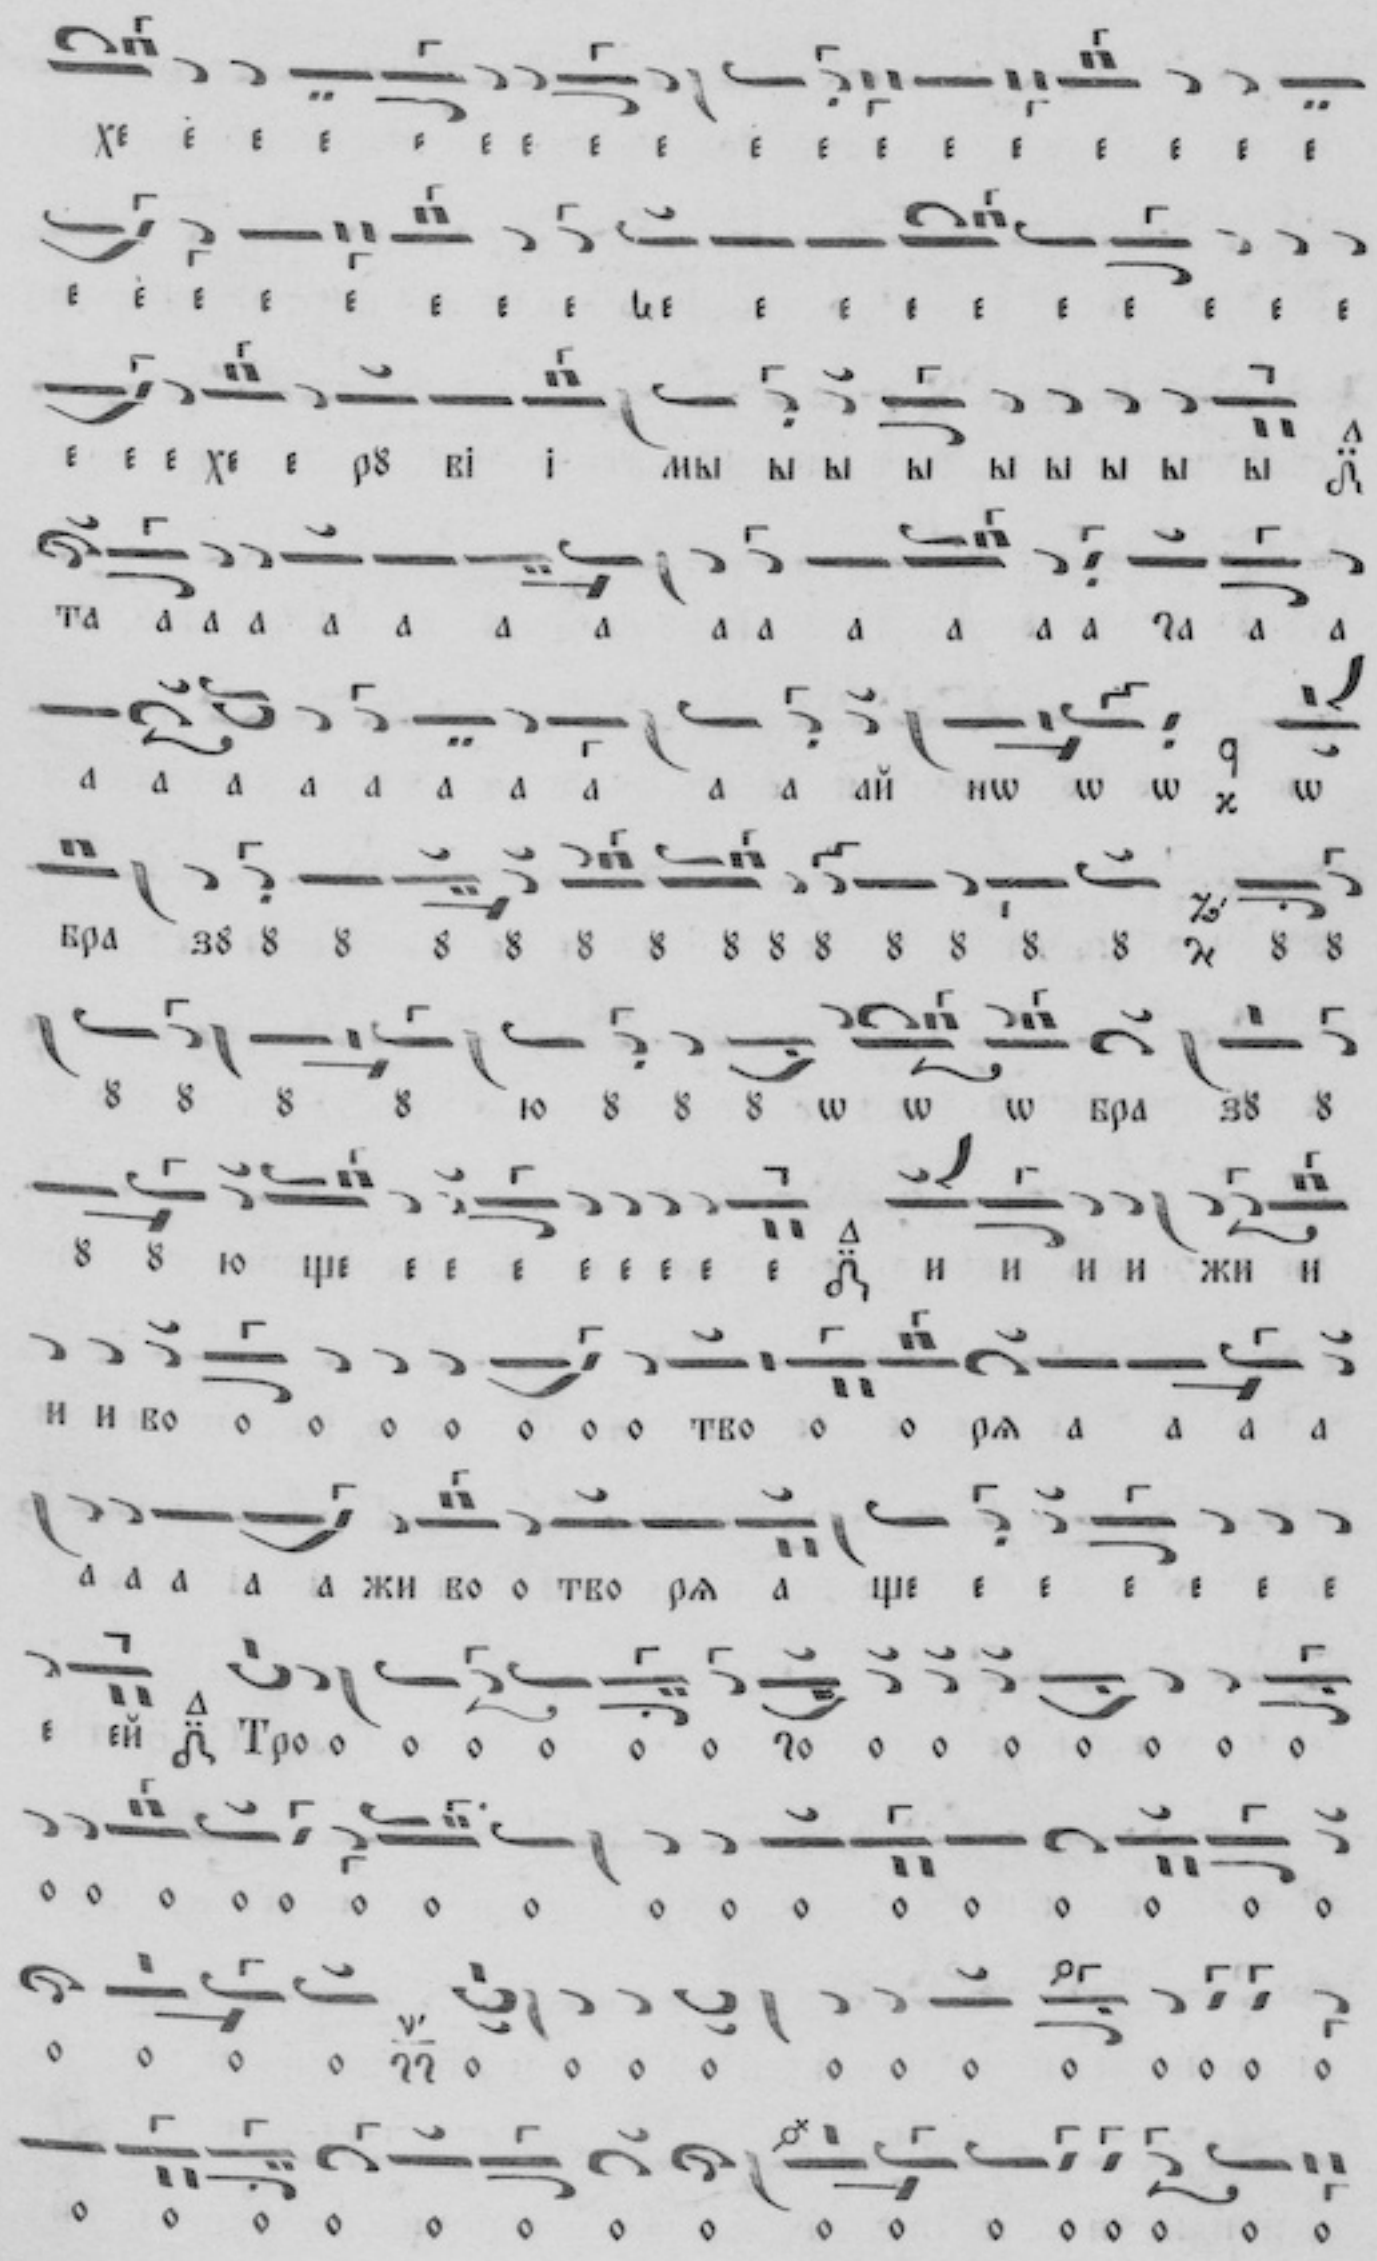 χε ε ε ε ε ε ε ε ε ε ε ε ε ε ε ε ε ε
ε ε ε ε ε ε ε ε ε ε ε ε ε ε ε ε ε
ε ε ε χε ε ρꙋ ві і мы ы ы ы ы ы ы ы ы
та а а а а а а а а а а а а а га а а
а а а а а а а а а а ай нѡ ѡ ѡ ѡ
бра зꙋ ꙋ ꙋ ꙋ ꙋ ꙋ ꙋ ꙋ ꙋ ꙋ ꙋ ꙋ ꙋ ꙋ ꙋ ꙋ
ꙋ ꙋ ꙋ ꙋ ю ꙋ ꙋ ꙋ ѡ ѡ ѡ бра зꙋ ꙋ
ꙋ ꙋ ю ще е е е е е е е е и и и и жи и
и и во о о о о о о о тво о о рѧ а а а а
а а а а а жи во о тво рѧ а ще е е е е е е
е ей Тро о о о о о о го о о о о о о о
о о о о о о о о о о о о о о о о о
о о о о о о о о о о о о о о о о
о о о о о о о о о о о о о о о о